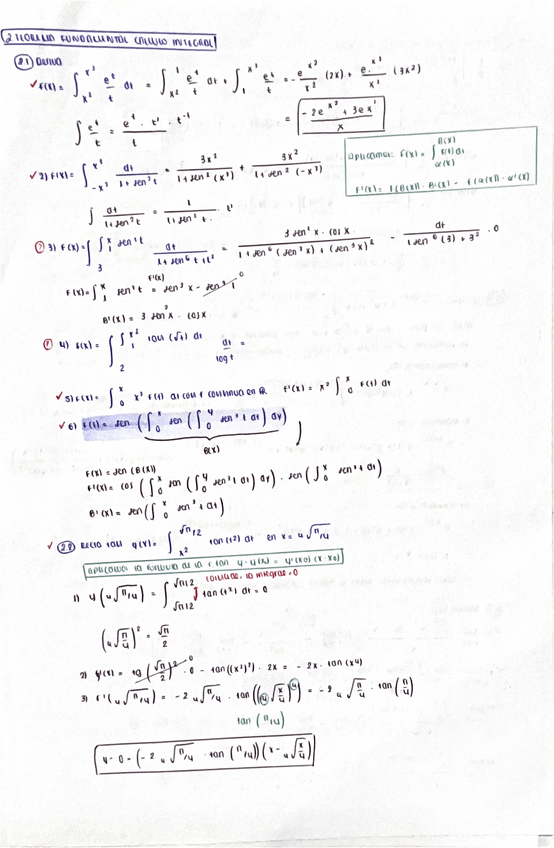 2 TEOREMA FUNDAMENTAL CÁLCULO INTEGRAL
2.1 Deriva
✓ f(x) = ∫_{x²}^{x³} e^t/t dt = ∫_{x²}^{1} e^t/t dt + ∫_{1}^{x³} e^t/t = - e^{x²}/x² (2x) + e^{x³}/x³ (3x²)
∫ e^t/t = e^t · t' · t^{-1} / t = (-2e^{x²} + 3e^{x³})/x
Aplicamos: F(x) = ∫_{α(x)}^{B(x)} f(t) dt
F'(x) = f(B(x)) · B'(x) - f(α(x)) · α'(x)
✓ 2) F(x) = ∫_{-x³}^{x³} dt/(1+sen²t) = 3x²/(1+sen²(x³)) + 3x²/(1+sen²(-x³))
∫ dt/(1+sen²t) = 1/(1+sen²t) · t'
? 3) F(x) = ∫_{3}^{∫_{1}^{x} sen³t} dt/(1+sen⁶t+t²) = 3 sen²x · cos x/(1+sen⁶(sen³x)+(sen³x)²) - dt/(1+sen⁶(3)+3²) · 0
F(x) = ∫_{1}^{x} sen³t = sen³x - sen³1
B'(x) = 3 sen²x · cos x
? 4) f(x) = ∫_{2}^{∫_{1}^{x²} tan(√t) dt} dt/log t =
✓ 5) f(x) = ∫_{0}^{x} x² f(t) dt con f continua en ℝ f'(x) = x² ∫_{0}^{x} f(t) dt
✓ 6) F(t) = sen (∫_{0}^{x} sen (∫_{0}^{y} sen³t dt) dy)
B(x)
F(x) = sen (B(x))
F'(x) = cos (∫_{0}^{x} sen (∫_{0}^{y} sen³t dt) dy) · sen (∫_{0}^{x} sen³t dt)
B'(x) = sen (∫_{0}^{x} sen³t dt)
✓ 2.2 Recta tan φ(x) = ∫_{x²}^{√π/2} tan(t²) dt en x = ⁴√π/4
1) φ(⁴√π/4) = ∫_{√π/2}^{√π/2} tan(t²) dt = 0
(⁴√π/4)² = √π/2
2) φ'(x) = tg (√π/2)² · 0 - tan((x²)²) · 2x = -2x · tan(x⁴)
3) f'(⁴√π/4) = -2 ⁴√π/4 · tan((⁴√π/4)⁴) = -2 ⁴√π/4 · tan(π/4)
tan(π/4)
y - 0 = (-2 ⁴√π/4 · tan(π/4)) (x - ⁴√π/4)